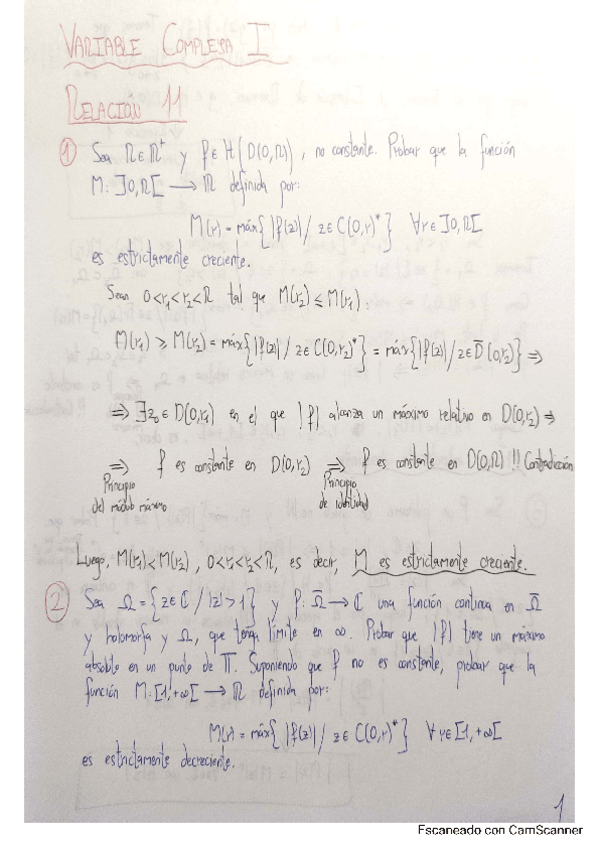 VARIABLE COMPLEJA I
RELACIÓN 11
① Sea R∈ℝ⁺ y f∈H(D(0,R)), no constante. Probar que la función
M: ]0,R[ → ℝ definida por:
M(r) = máx{|f(z)| / z∈C(0,r)*} ∀r∈]0,R[
es estrictamente creciente.
Sean 0<r₁<r₂<R tal que M(r₂) ≤ M(r₁):
M(r₁) ≥ M(r₂) = máx{|f(z)| / z∈C(0,r₂)*} = máx{|f(z)| / z∈D̄(0,r₂)} ⇒
⇒ ∃z₀∈D(0,r₂) en el que |f| alcanza un máximo relativo en D(0,r₂) ⇒
⇒ f es constante en D(0,r₂) ⇒ f es constante en D(0,R) !! Contradicción
Principio Principio
del módulo máximo de identidad
Luego, M(r₁)<M(r₂), 0<r₁<r₂<R, es decir, M es estrictamente creciente.
② Sea Ω={z∈ℂ / |z|>1} y f: Ω̄→ℂ una función continua en Ω̄
y holomorfa y Ω, que tenga límite en ∞. Probar que |f| tiene un máximo
absoluto en un punto de 𝕋. Suponiendo que f no es constante, probar que la
función M: [1,+∞[ → ℝ definida por:
M(r) = máx{|f(z)| / z∈C(0,r)*} ∀r∈[1,+∞[
es estrictamente decreciente.
1
Escaneado con CamScanner